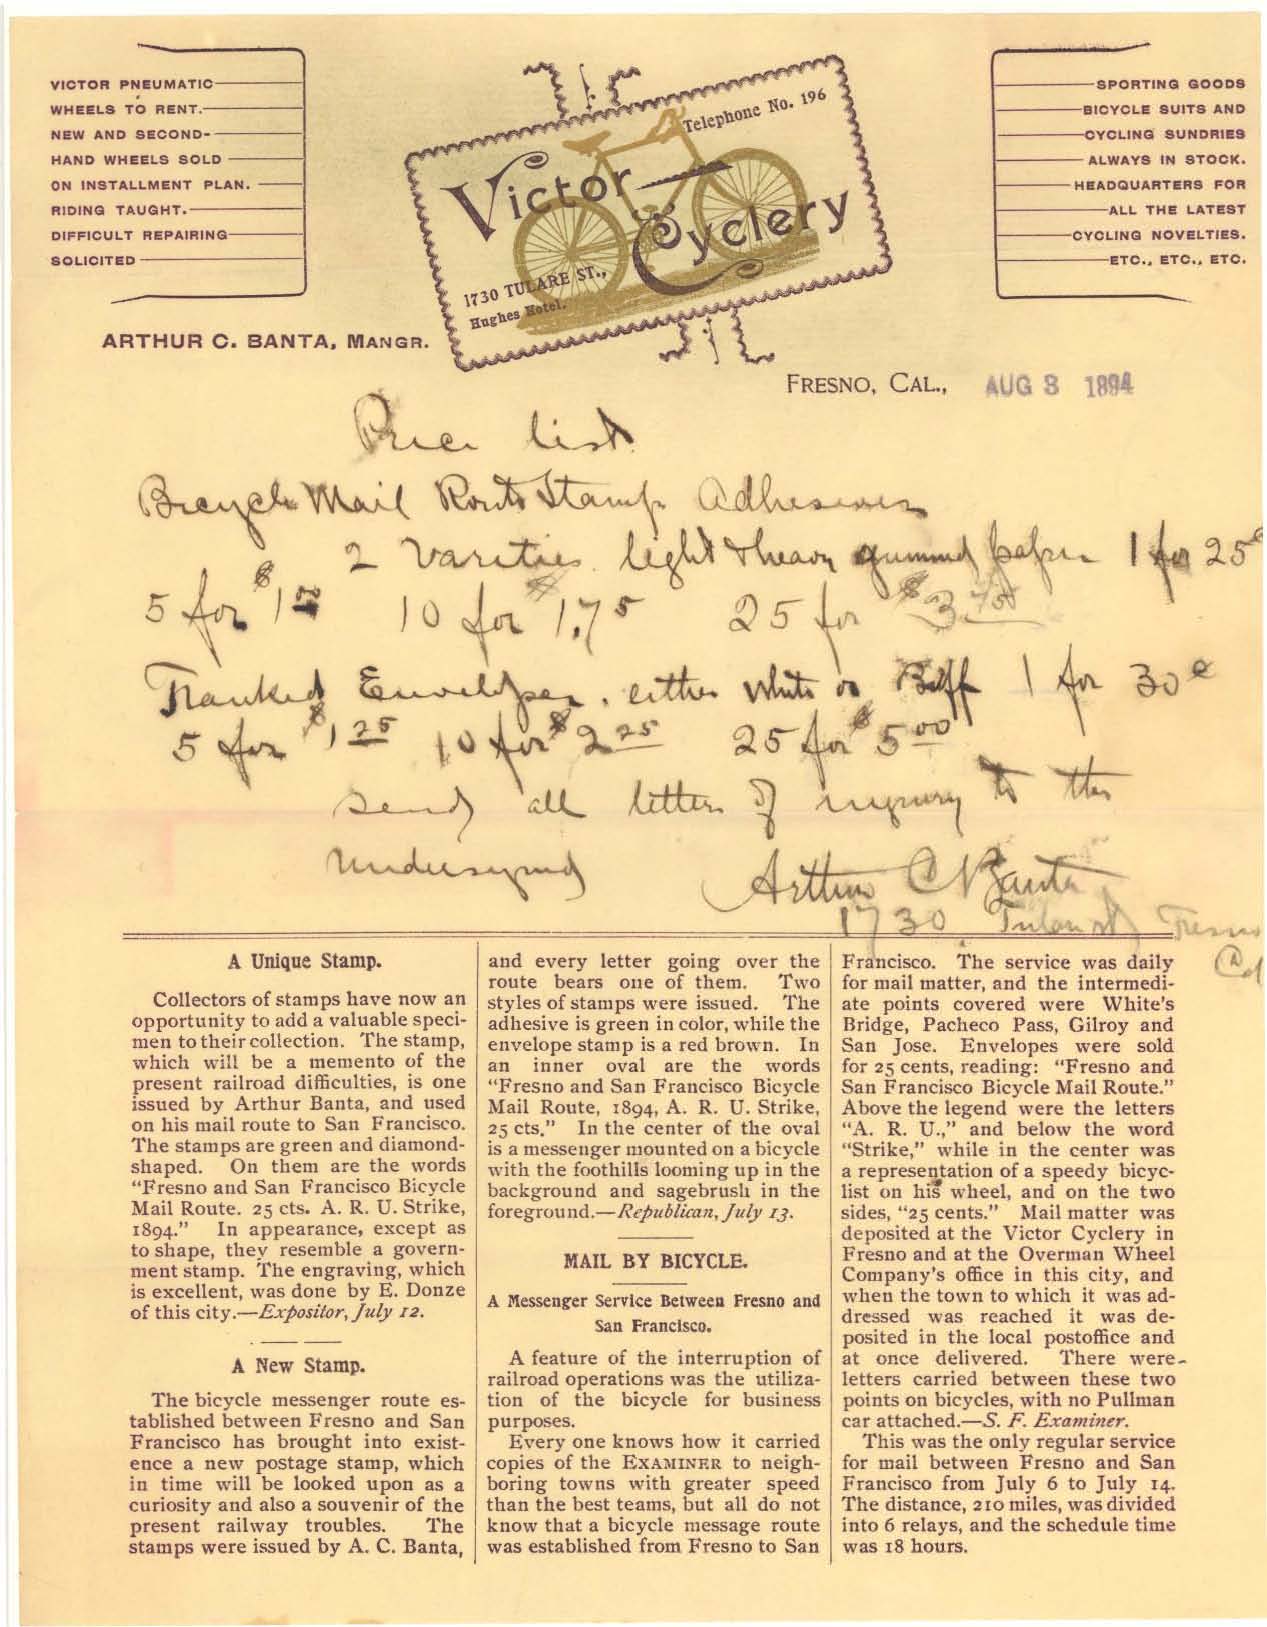 VICTOR PNEUMATIC
WHEELS TO RENT.
NEW AND SECOND-
HAND WHEELS SOLD
ON INSTALLMENT PLAN.
RIDING TAUGHT.
DIFFICULT REPAIRING
SOLICITED
ARTHUR C. BANTA, MANGR.
Telephone No. 196
Victor
Cyclery
1730 TULARE ST.,
Hughes Hotel.
SPORTING GOODS
BICYCLE SUITS AND
CYCLING SUNDRIES
ALWAYS IN STOCK.
HEADQUARTERS FOR
ALL THE LATEST
CYCLING NOVELTIES.
ETC., ETC., ETC.
FRESNO, CAL., AUG 3 1894
Price list
Bicycle Mail Route Stamp Adhesives
2 Varities light & heavy gummed paper 1 for 25c
5 for $1.00 10 for $1.75 25 for $3.75
Franked Envelopes. either White or Buff 1 for 30c
5 for $1.25 10 for $2.25 25 for $5.00
Send all letters of inquiry to the
undersigned Arthur C Banta
1730 Tulare St Fresno
Cal
A Unique Stamp.
Collectors of stamps have now an
opportunity to add a valuable speci-
men to their collection. The stamp,
which will be a memento of the
present railroad difficulties, is one
issued by Arthur Banta, and used
on his mail route to San Francisco.
The stamps are green and diamond-
shaped. On them are the words
"Fresno and San Francisco Bicycle
Mail Route. 25 cts. A. R. U. Strike,
1894." In appearance, except as
to shape, they resemble a govern-
ment stamp. The engraving, which
is excellent, was done by E. Donze
of this city.—Expositor, July 12.
A New Stamp.
The bicycle messenger route es-
tablished between Fresno and San
Francisco has brought into exist-
ence a new postage stamp, which
in time will be looked upon as a
curiosity and also a souvenir of the
present railway troubles. The
stamps were issued by A. C. Banta,
and every letter going over the
route bears one of them. Two
styles of stamps were issued. The
adhesive is green in color, while the
envelope stamp is a red brown. In
an inner oval are the words
"Fresno and San Francisco Bicycle
Mail Route, 1894, A. R. U. Strike,
25 cts." In the center of the oval
is a messenger mounted on a bicycle
with the foothills looming up in the
background and sagebrush in the
foreground.—Republican, July 13.
MAIL BY BICYCLE.
A Messenger Service Between Fresno and
San Francisco.
A feature of the interruption of
railroad operations was the utiliza-
tion of the bicycle for business
purposes.
Every one knows how it carried
copies of the EXAMINER to neigh-
boring towns with greater speed
than the best teams, but all do not
know that a bicycle message route
was established from Fresno to San
Francisco. The service was daily
for mail matter, and the intermedi-
ate points covered were White's
Bridge, Pacheco Pass, Gilroy and
San Jose. Envelopes were sold
for 25 cents, reading: "Fresno and
San Francisco Bicycle Mail Route."
Above the legend were the letters
"A. R. U.," and below the word
"Strike," while in the center was
a representation of a speedy bicyc-
list on his wheel, and on the two
sides, "25 cents." Mail matter was
deposited at the Victor Cyclery in
Fresno and at the Overman Wheel
Company's office in this city, and
when the town to which it was ad-
dressed was reached it was de-
posited in the local postoffice and
at once delivered. There were
letters carried between these two
points on bicycles, with no Pullman
car attached.—S. F. Examiner.
This was the only regular service
for mail between Fresno and San
Francisco from July 6 to July 14.
The distance, 210 miles, was divided
into 6 relays, and the schedule time
was 18 hours.